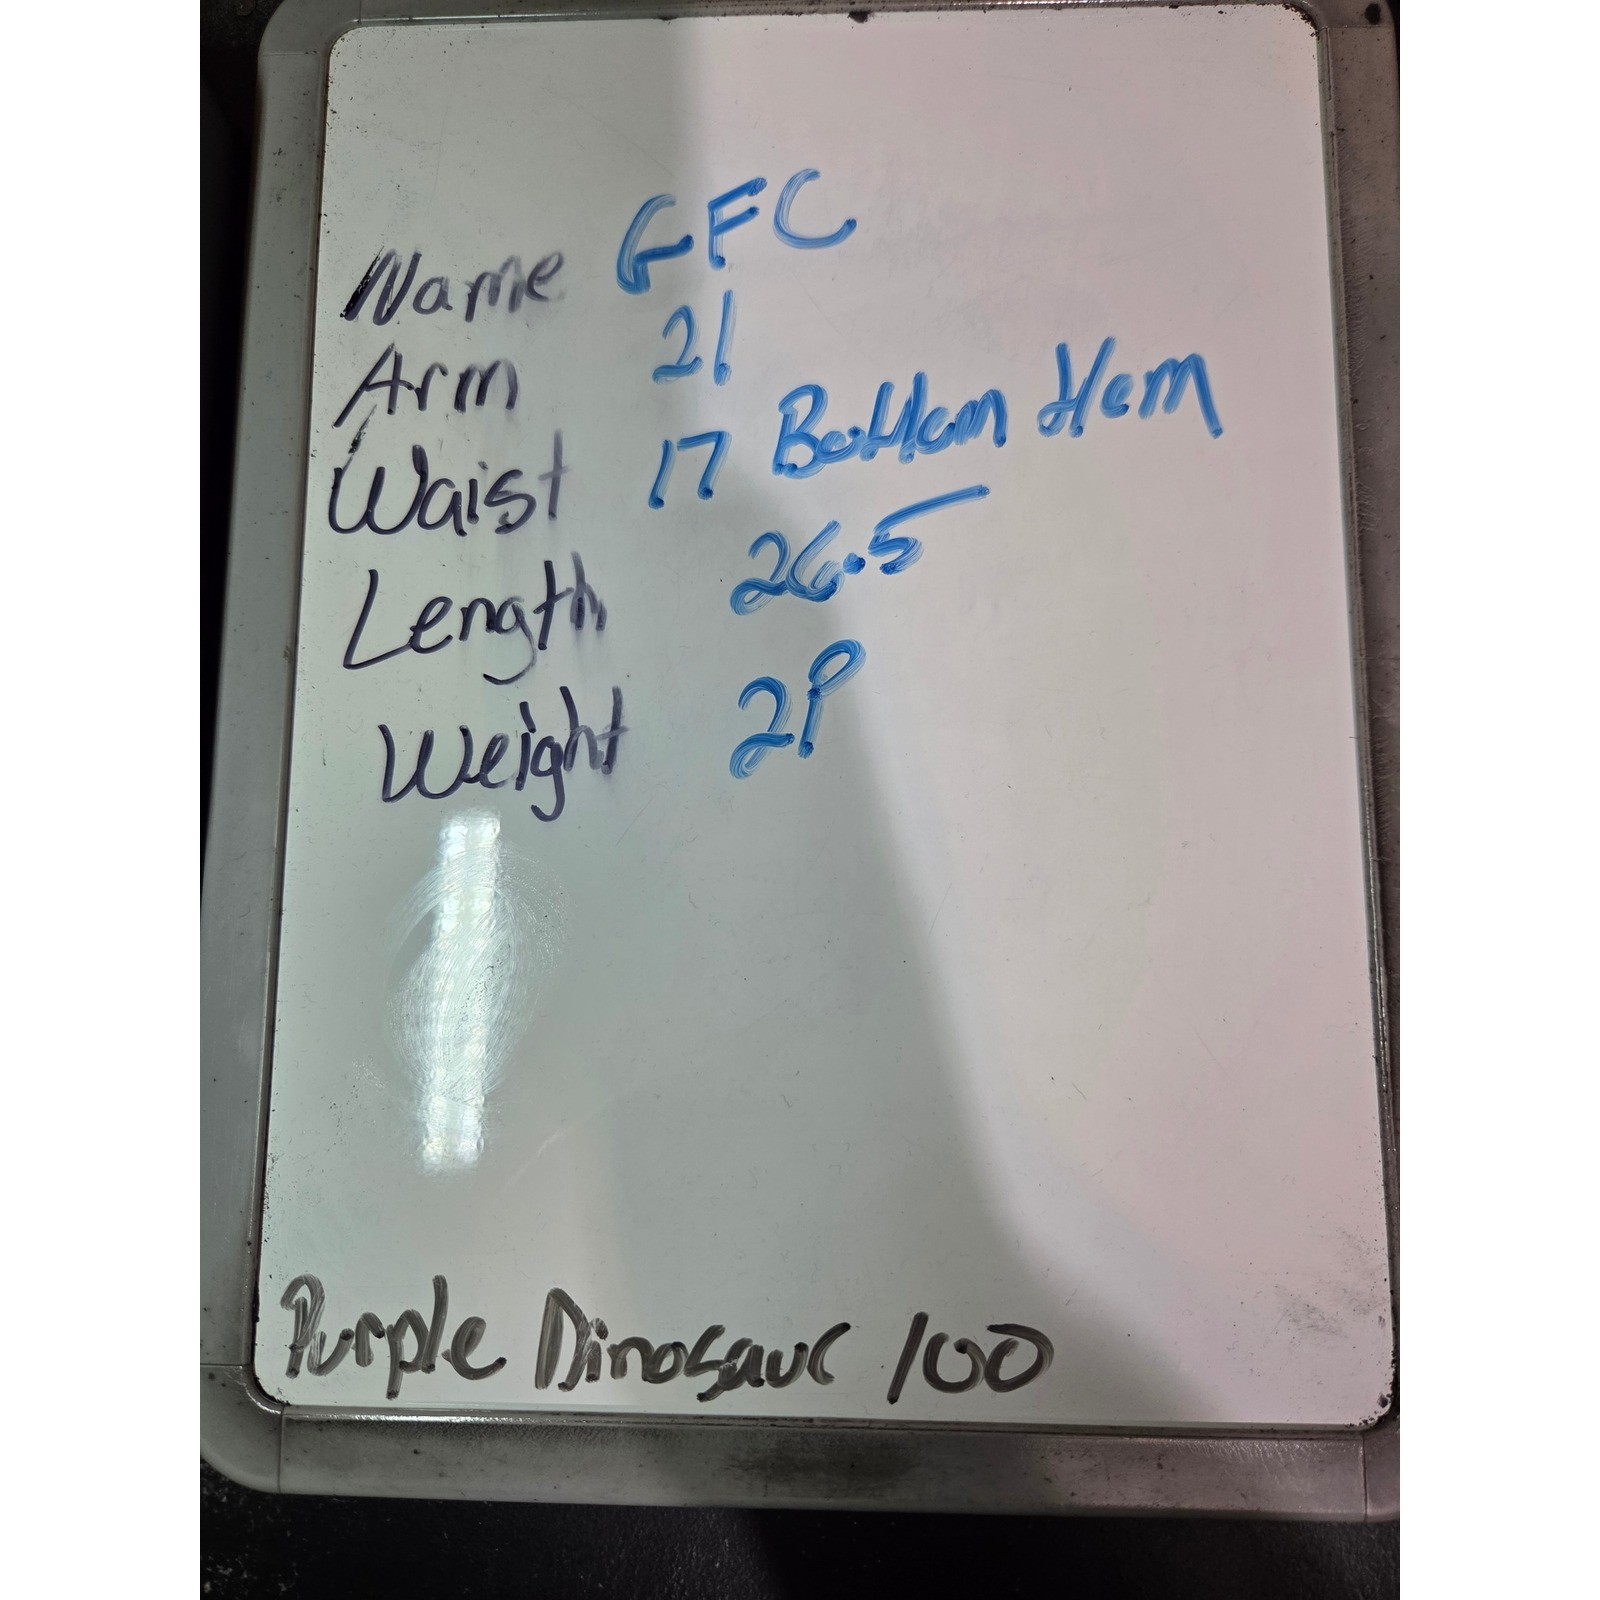 Name GFC
Arm 21
Waist 17 Bottom Hem
Length 26.5
Weight 29
Purple Dinosaur 100